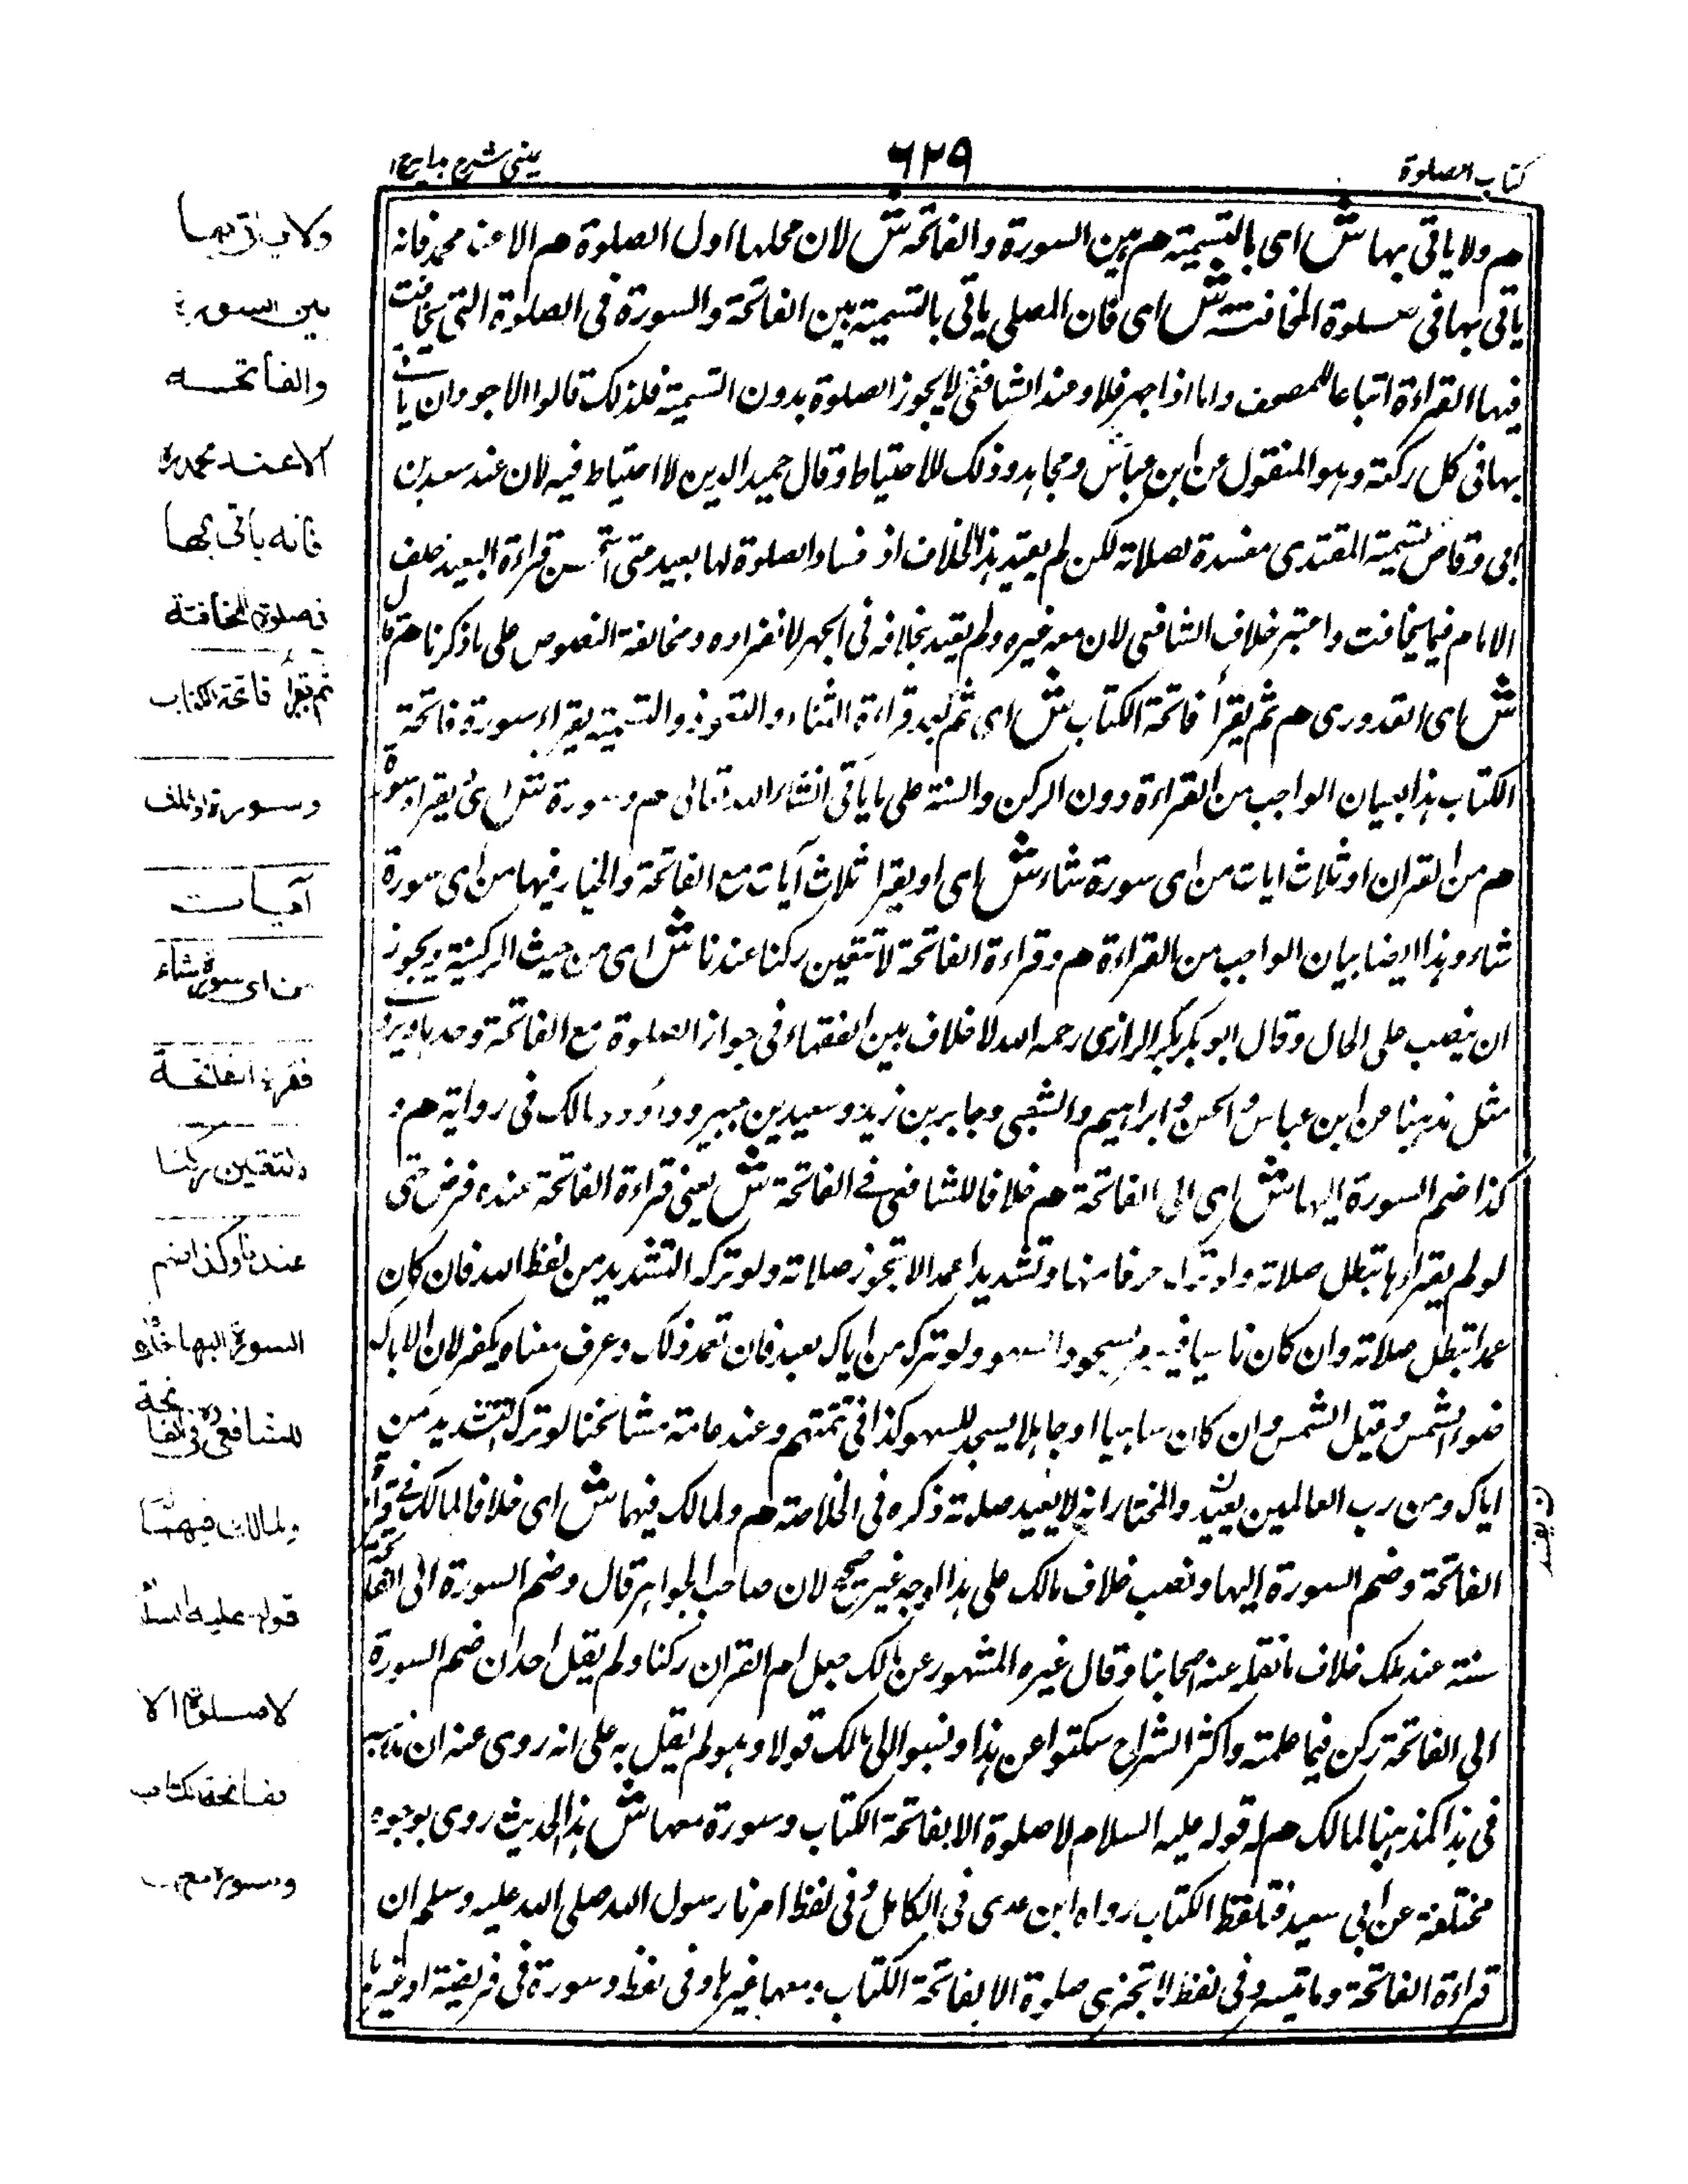 كتاب الصلوة
٦٢٩
عينى شرح هدايه ج ١
م ولا ياتى بها ش اى بالتسمية م بين السورة والفاتحة ش لان محلها اول الصلوة م الا عند محمد فانه
ياتى بها فى صلوة المخافتة ش اى فان المصلى ياتى بالتسمية بين الفاتحة والسورة فى الصلوة التى يخافت
فيها القراءة اتباعا للمصحف واما اذا جهر فلا وعند الشافعى لا يجوز الصلوة بدون التسمية فلذلك قالوا الاجود ان ياتى
بها فى كل ركعة وهو المنقول عن ابن عباس ومجاهد وذلك للاحتياط وقال حميد الدين لا احتياط فيه لان عند سعد بن
ابى وقاص تسمية المقتدى مفسدة لصلاته لكن لم يعتبر هذا الخلاف اذ فساد الصلوة لها بعيد متى استحسن قراءة البعيد خلف
الامام فيما يخافت واعتبر خلاف الشافعى لان معه غيره ولم يقيد بخلافه فى الجهر لانفراده ومخالفة النصوص على ما ذكرنا م قال
ش اى القدورى م ثم يقرأ فاتحة الكتاب ش اى ثم بعد قراءة الثناء والتعوذ والتسمية يقراء سورة فاتحة
الكتاب هذا بيان الواجب من القراءة دون الركن والسنة على ما ياتى انشاء الله تعالى م وسورة ش اى يقراء سورة
م من القران او ثلاث ايات من اى سورة شاء ش اى او يقرا ثلاث آيات مع الفاتحة والخيار فيها من اى سورة
شاء وهذا ايضا بيان الواجب من القراءة م وقراءة الفاتحة لا تتعين ركنا عندنا ش اى من حيث الركنية ويجوز
ان ينصب على الحال وقال ابو بكر الرازى رحمه الله لا خلاف بين الفقهاء فى جواز الصلوة مع الفاتحة وحدها ويروى
مثل مذهبنا عن ابن عباس والحسن وابراهيم والشعبى وجابر بن زيد وسعيد بن جبير وداؤد ومالك فى رواية م و
كذا ضم السورة اليها ش اى الى الفاتحة م خلافا للشافعى فى الفاتحة ش يعنى قراءة الفاتحة عنده فرض حتى
لو لم يقراها تبطل صلاته ولو ترك حرفا منها وتشديدا عمدا لا تجوز صلاته ولو ترك التشديد من لفظ الله فان كان
عمدا تبطل صلاته وان كان ناسيا فيه سجود السهو ولو ترك من اياك نعبد فان تعمد ذلك وعرف معناه يكفر لان الاياك
ضوء الشمس وقيل الشمس وان كان ساهيا او جاهلا يسجد للسهو كذا فى تتمتهم وعند عامة مشائخنا لو ترك التشديد من
اياك ومن رب العالمين يعيد والمختار انه لا يعيد صلاته ذكره فى الخلاصة م ولمالك فيهما ش اى خلافا لمالك فى قرأة
الفاتحة وضم السورة اليها ونصب خلاف مالك على هذا الوجه غير صحيح لان صاحب الجواهر قال وضم السورة الى الفاتحة
سنة عند مالك خلاف ما نقله عنه اصحابنا وقال غيره المشهور عن مالك جعل ام القران ركنا ولم يقل احد ان ضم السورة
الى الفاتحة ركن فيما علمته واكثر الشراح سكتوا عن هذا ونسبوا الى مالك قولا وهو لم يقل به على انه روى عنه ان مذهبه
فى هذا كمذهبنا لمالك م له قوله عليه السلام لا صلوة الا بفاتحة الكتاب وسورة معها ش هذا الحديث روى بوجوه
مختلفة عن ابى سعيد فتلفظ الكتاب رواه ابن عدى فى الكامل وفى لفظ امرنا رسول الله صلى الله عليه وسلم ان
قراءة الفاتحة وما تيسر وفى لفظ لا تجزى صلوة الا بفاتحة الكتاب ومعها غيرها وفى لفظ وسورة فى فريضة او غيرها
ولا ياتى بها
بين السورة
والفاتحه
الا عند محمد رح
فانه ياتى بها
فى صلوة المخافتة
ثم يقرأ فاتحة الكتاب
وسورة او ثلث
آيات
من اى سورة شاء
فقراءة الفاتحة
لا تتعين ركنا
عندنا وكذا ضم
السورة اليها خلافا
للشافعى رح فى الفاتحة
ولمالك فيهما
قوله عليه السلام
لا صلوة الا
بفاتحة الكتاب
وسورة معها